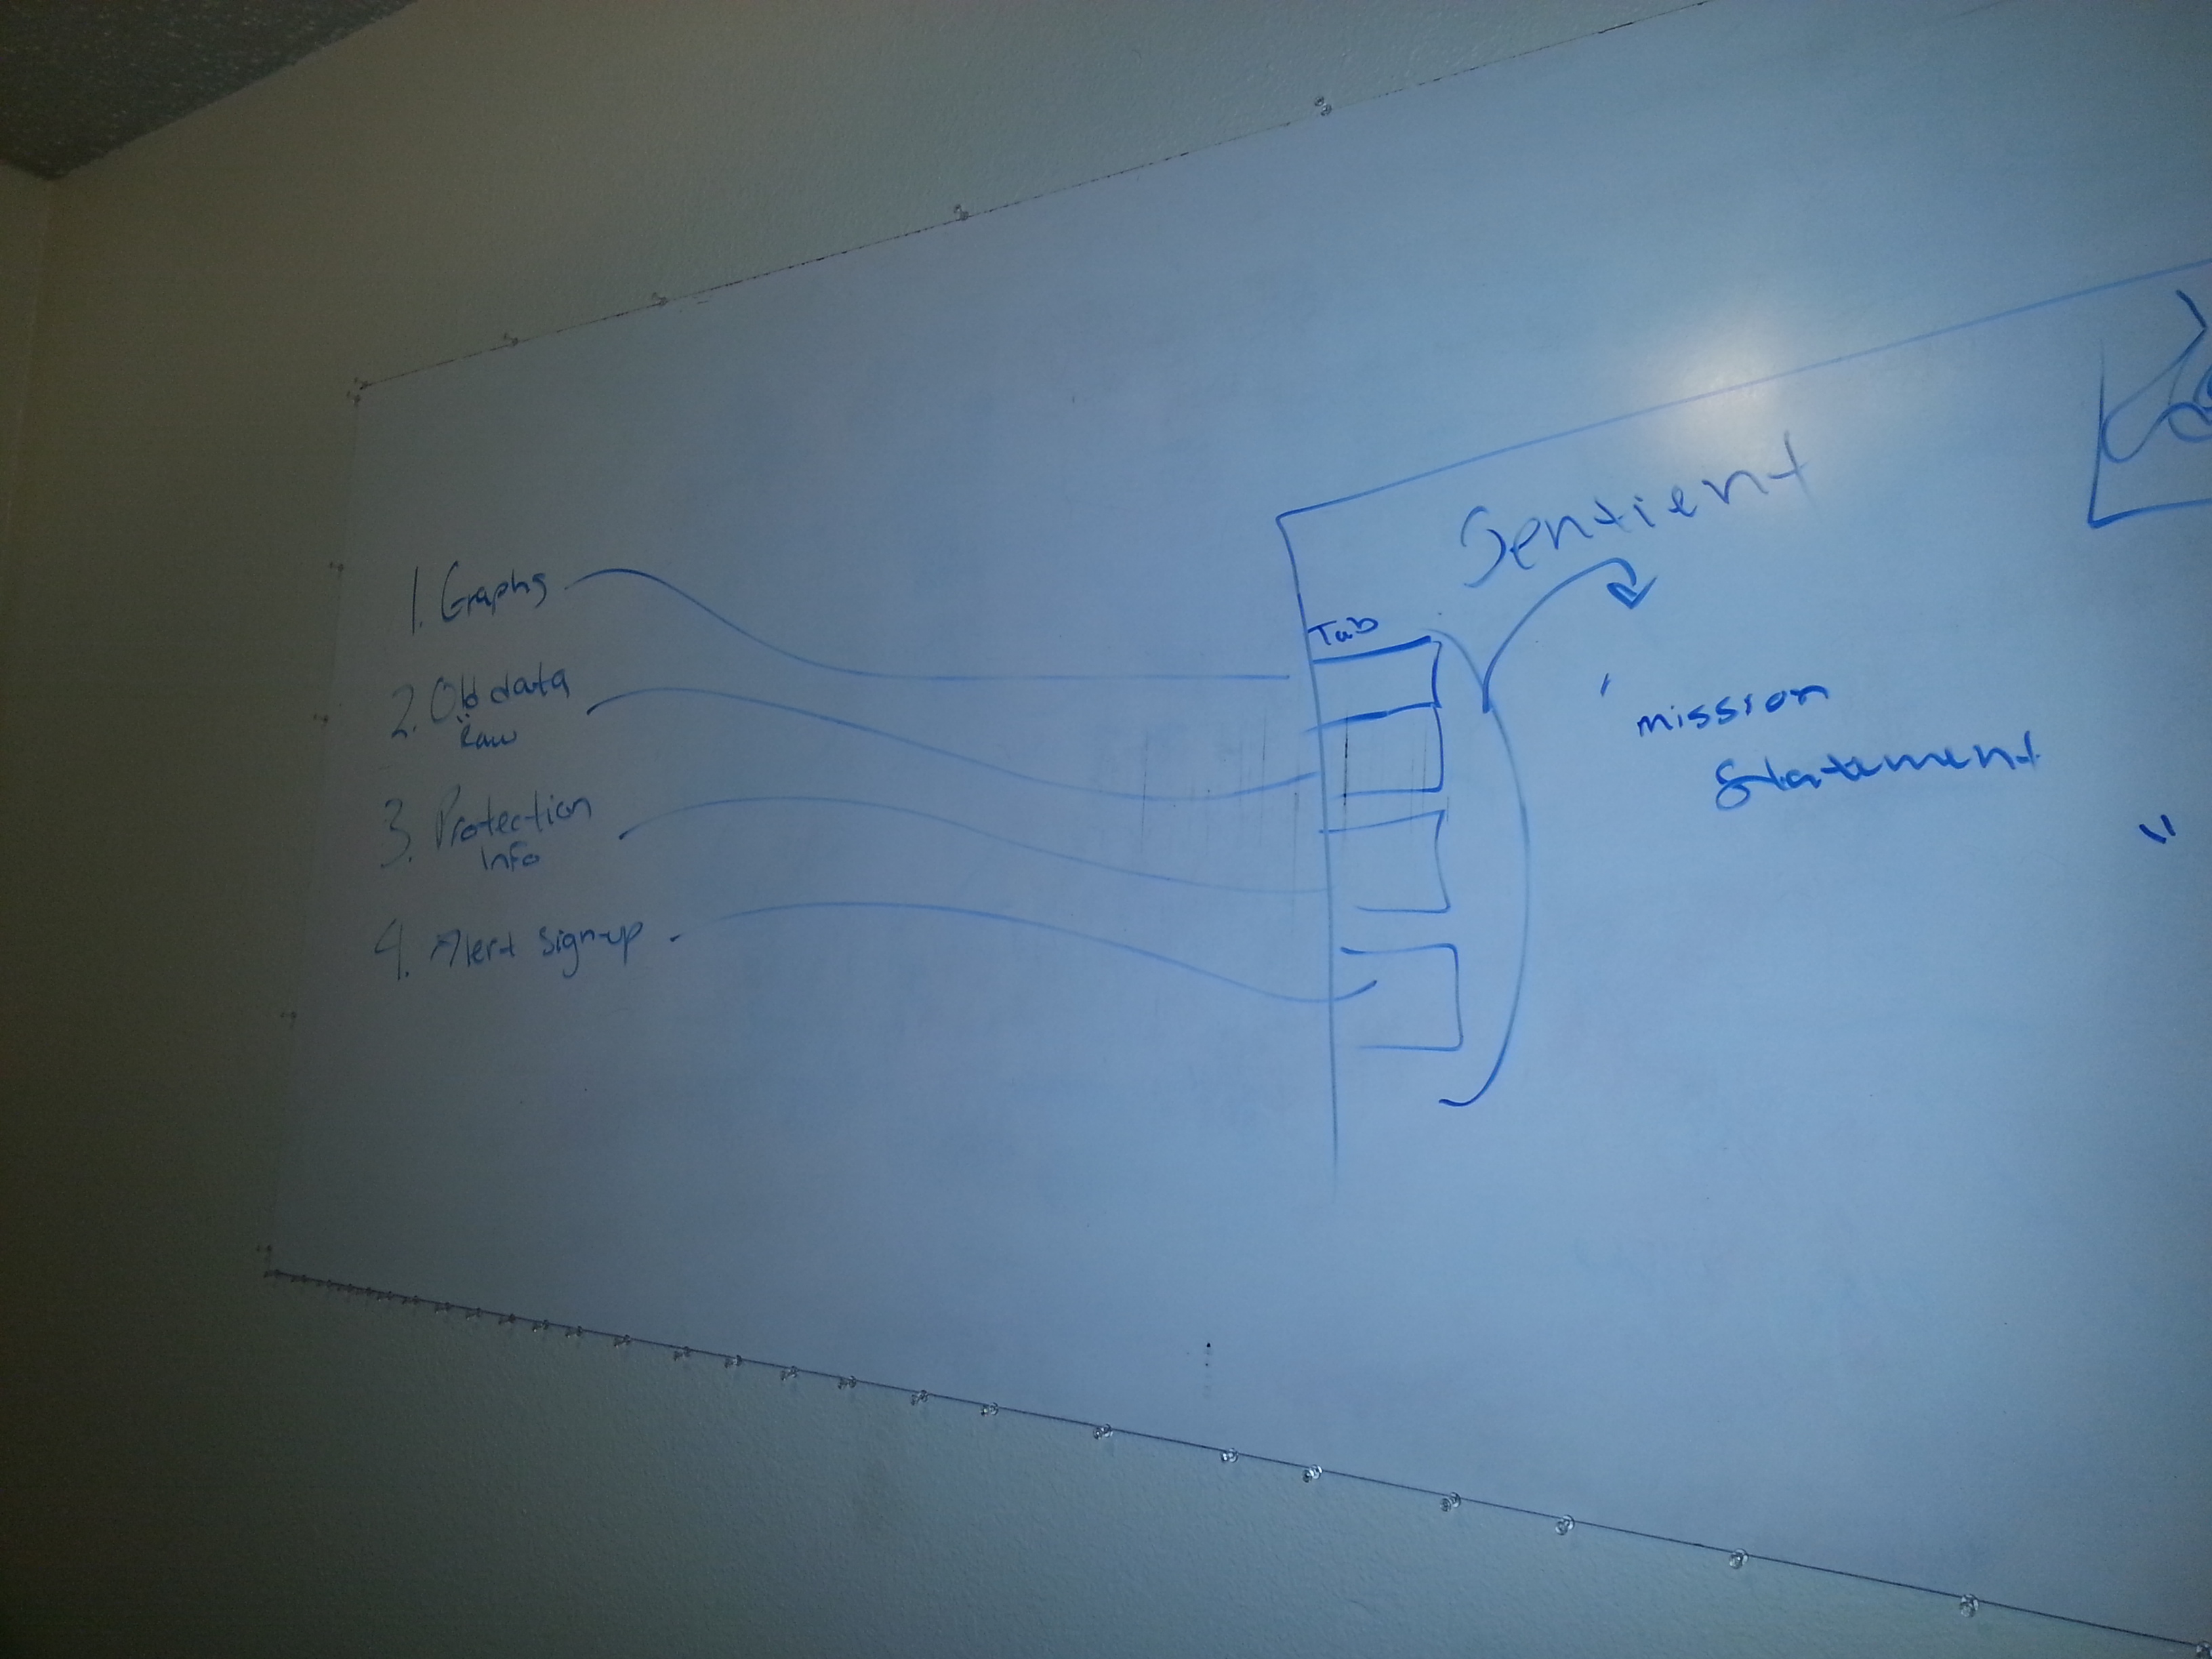 1. Graphs
2. Old data
Raw
3. Protection
Info
4. Alert sign-up
Sentient
Tab
' mission
Statement
"